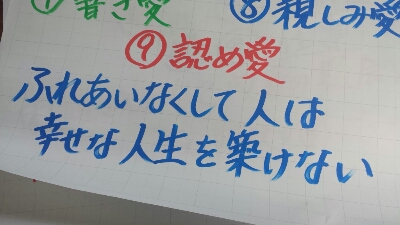 ⑦書き愛 ⑧親しみ愛
⑨認め愛
ふれあいなくして人は
幸せな人生を築けない